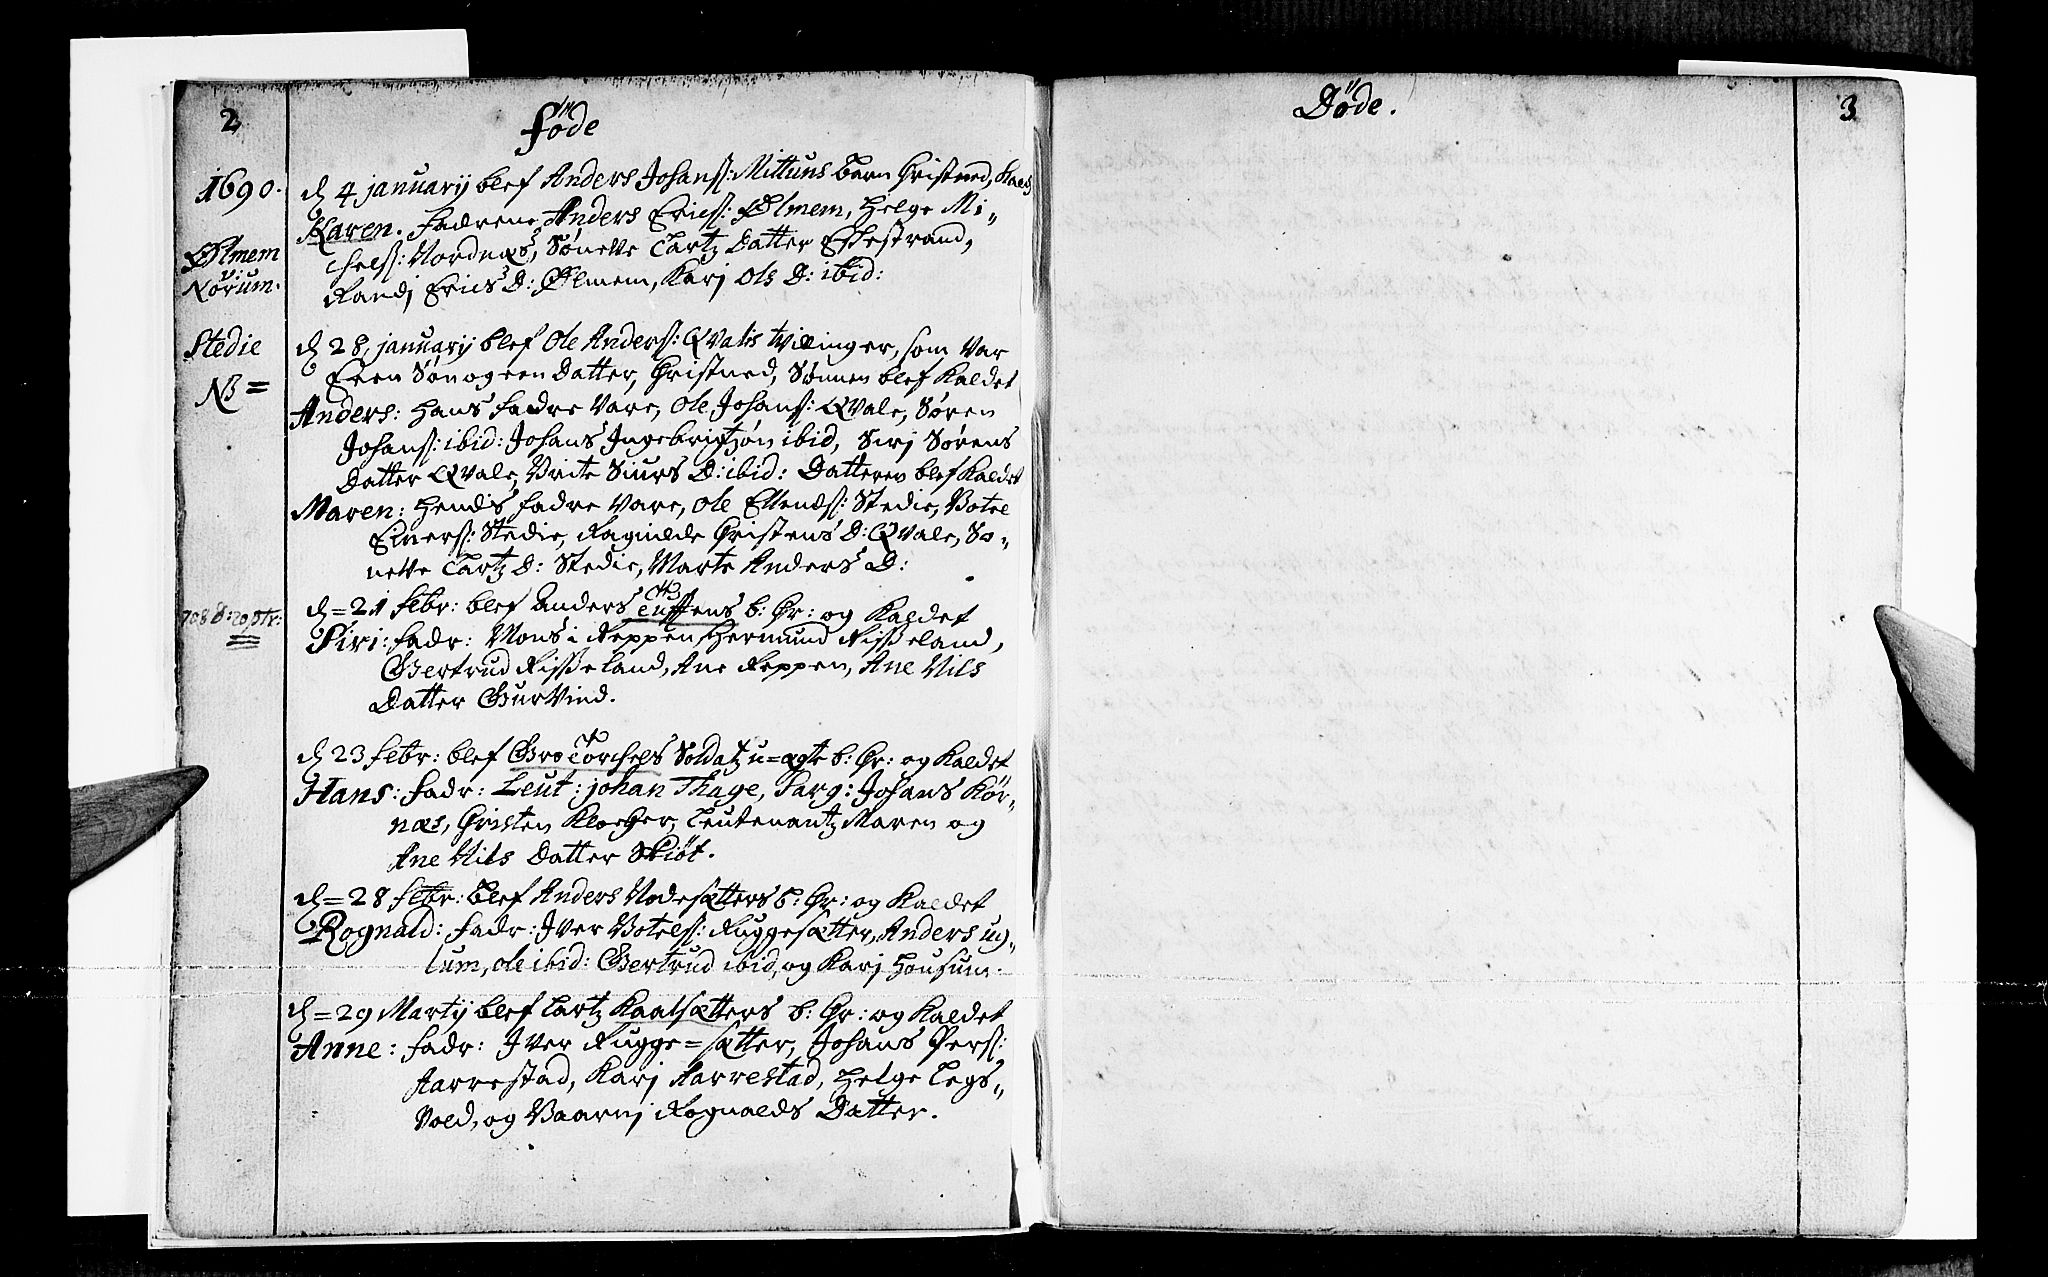 2
Föde
1690.
d 4 januarij blef Anders Johanss: Mittuns barn Christned, Kald
Karen. Fadrene Anders Ericss: Ølmem, Helge Mi„
Ølmem
chelss: Nordnæs, Sønette Lartz Datter Eschestrand,
Norum.
Randj Erics D: Ølmem, Karj Ols D: ibid:
Stedie
d 28, januarij blef Ole Anderss: Qvals tvillinger, som var
Een Søn og een Datter, Christned, Sønnen blef Kaldet
NB =
Anders: Hans fadre vare, Ole Johanss: Qvale, Søren
Johanss: ibid: Johans Ingebrigtzøn ibid, Sirj Sørens
Datter Qvale, Brite Siurs D: ibid: Datteren blef Kaldet
Maren: Hendis fadre vare, Ole Ellendss: Stedie, Botel
Eivers: Stedie, Ragnilde Christens D: Qvale, Sø„
nette Lartz D: Stedie, Marte Anders D:
d = 21 Febr: blef Anders Tuffens b: Chr: og Kaldet
Siri: Fadr: Mons i Reppen, Hermund Risseland,
Gertrud Risseland, Ane Reppen, Ane Nils
Datter Gurvind.
d 23 Febr: blef Gro Torchels Soldatz u=ægte b: Chr: og Kaldet
Hans: Fadr: Leut: johan Thage, Sarg: Johans Kør„
næs, Christen Klocher, Leutenantz Maren og
Ane Nils Datter Skiøt.
d = 28 Febr: blef Anders Nodesætters b: Chr: og Kaldet
Rognald: Fadr: Iver Botelss: Ruggesætter, Anders ug„
lum, ole ibid: Gertrud ibid, og Karj Housum.
d = 29 Martij blef Lartz Kaalsætters b: Chr: og Kaldet
Anne: Fadr: Iver Rugge=sætter, Johans Perss:
Aarrestad, Karj Aarrestad, Helge Legs„
vold, og Baarnj Rognalds Datter.
Döde.
3